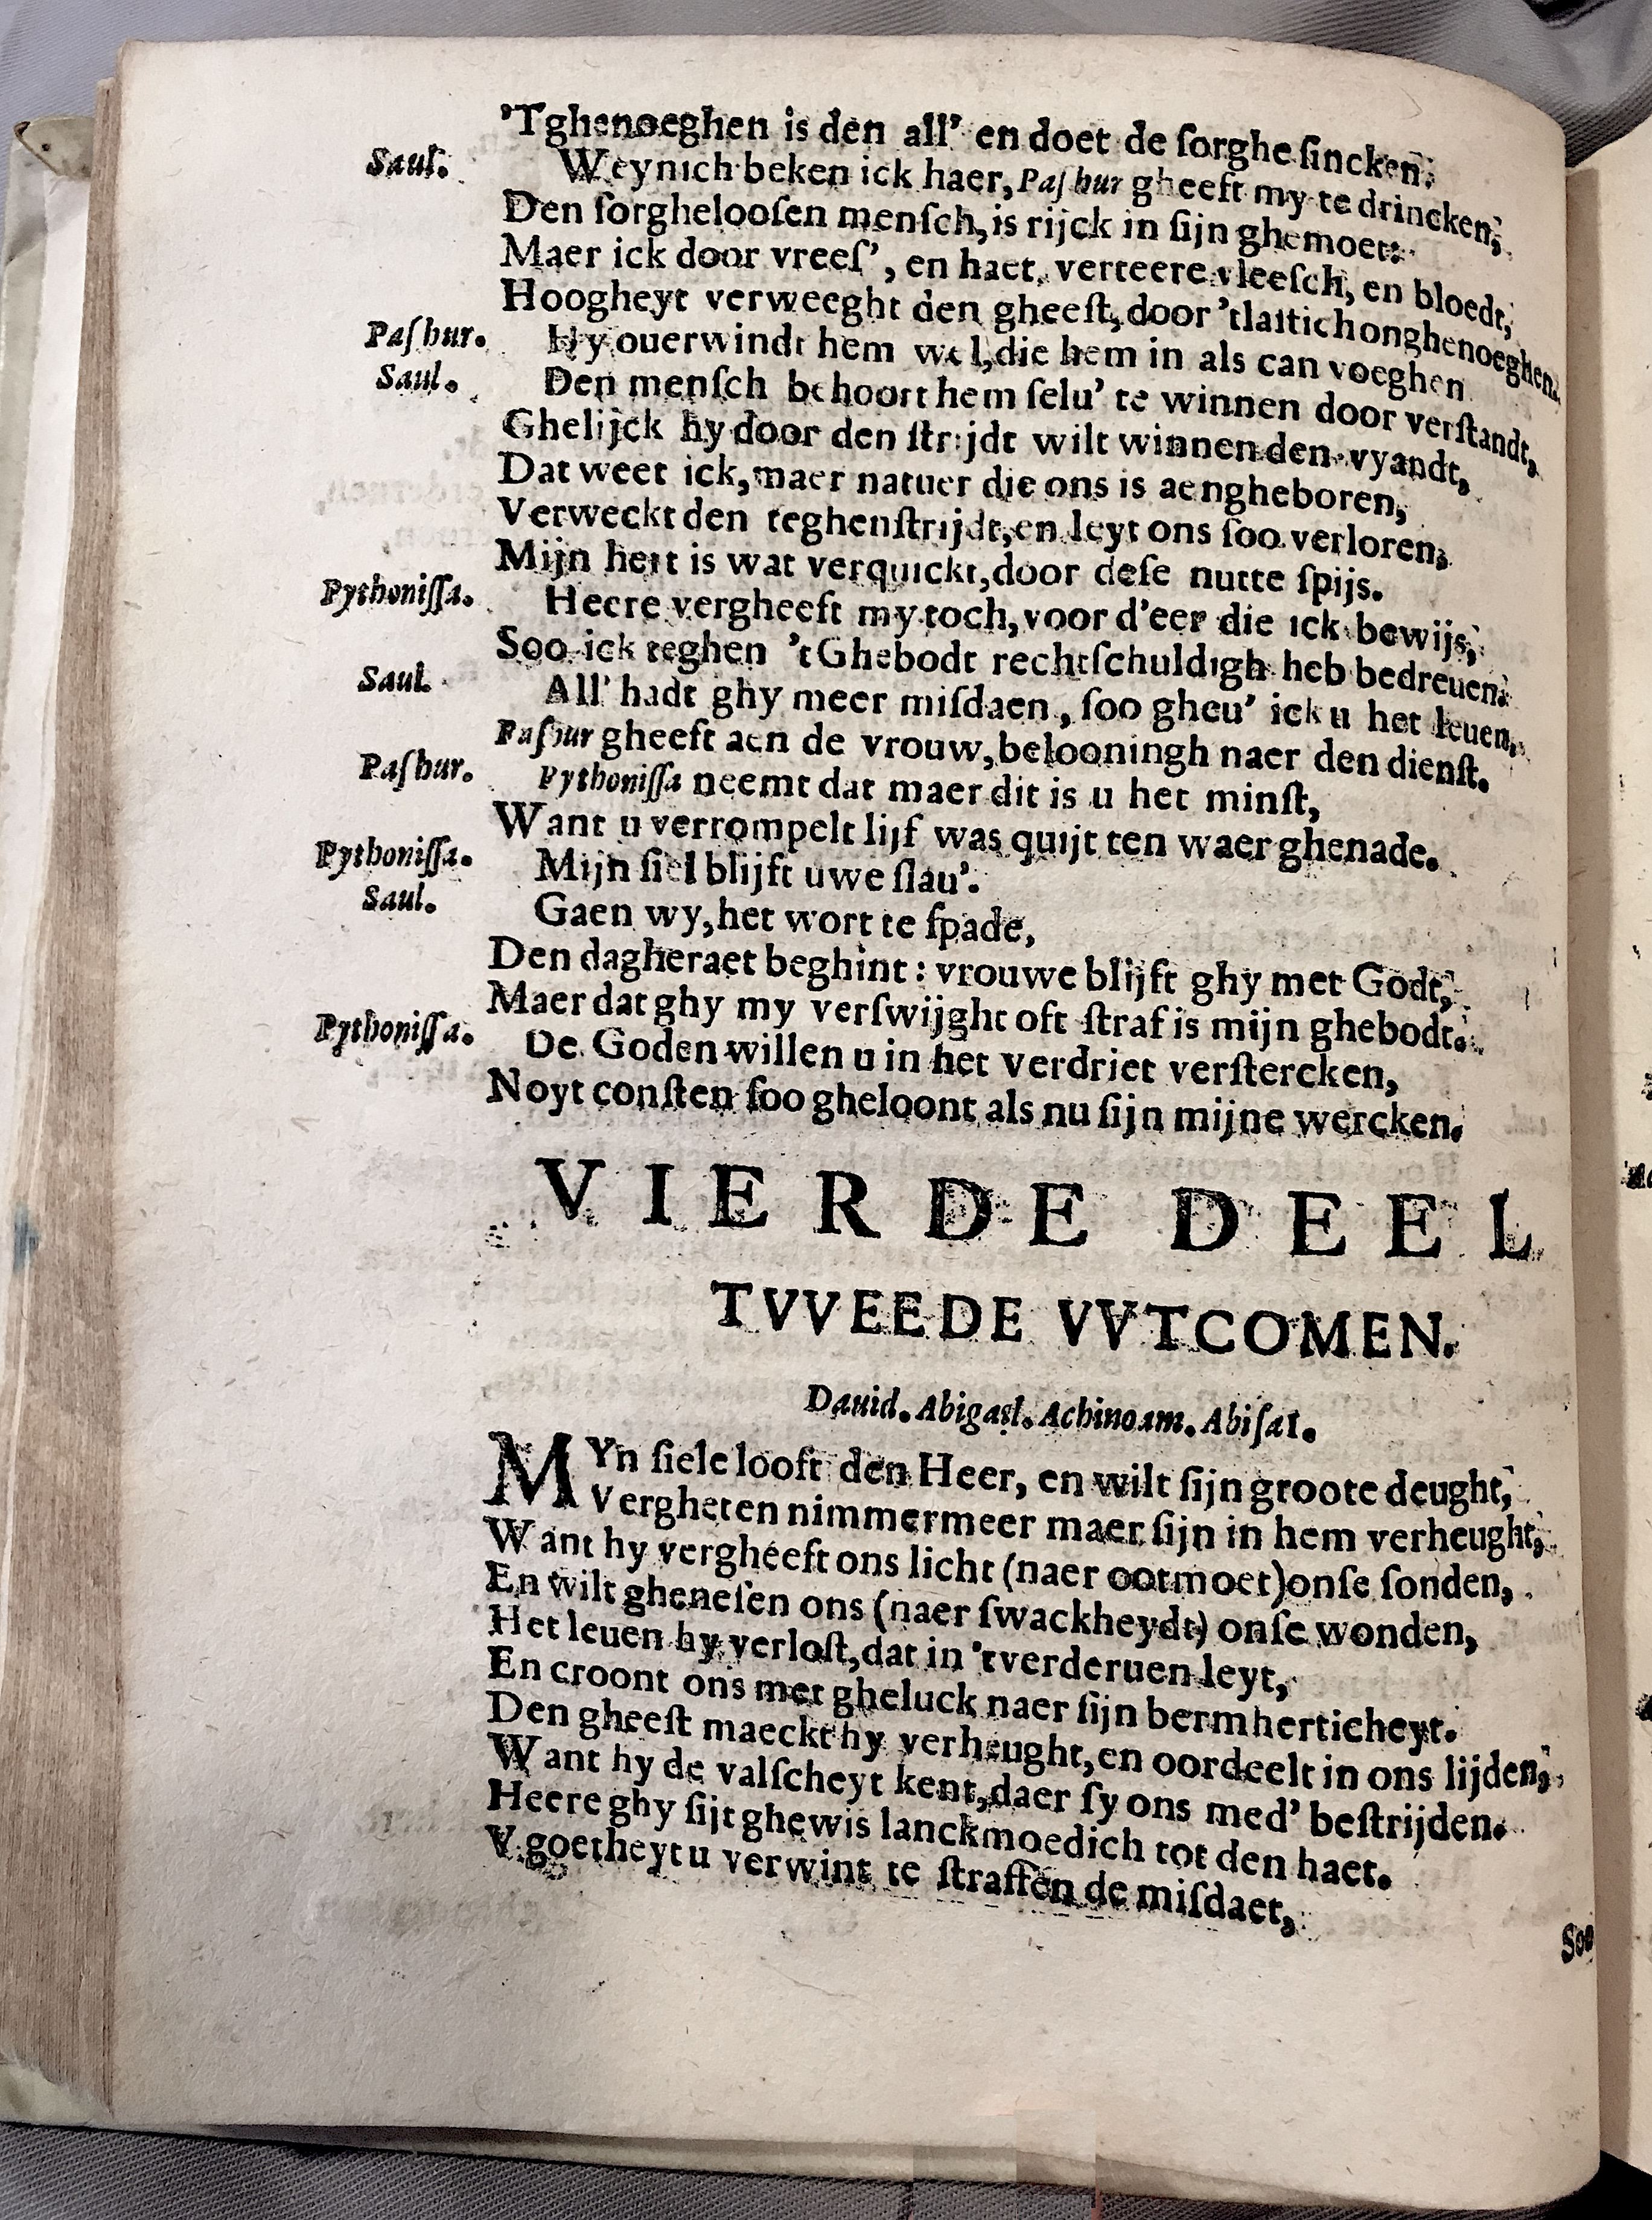 'Tghenoeghen is den all' en doet de ſorghe ſincken.
Saul. Weynich beken ick haer, Paſhur gheeft my te drincken,
Den ſorghelooſen menſch, is rijck in ſijn ghemoet:
Maer ick door vreeſ', en haet, verteere vleeſch, en bloedt,
Hoogheyt verweeght den gheeſt, door 'tlaſtich onghenoeghen.
Paſhur. Hy ouerwindt hem wel, die hem in als can voeghen
Saul. Den menſch behoort hem ſelu' te winnen door verſtandt,
Ghelijck hy door den ſtrijdt wilt winnen den vyandt,
Dat weet ick, maer natuer die ons is aengheboren,
Verweckt den teghenſtrijdt, en leyt ons ſoo verloren,
Mijn hert is wat verquickt, door deſe nutte ſpijs.
Pythoniſſa. Heere vergheeft my toch, voor d'eer die ick bewijs,
Soo ick teghen 't Ghebodt rechtſchuldigh heb bedreuen.
Saul. All' hadt ghy meer miſdaen, ſoo gheu' ick u het leuen,
Paſhur gheeft aen de vrouw, belooningh naer den dienſt.
Paſhur. Pythoniſſa neemt dat maer dit is u het minſt,
Want u verrompelt lijf was quijt ten waer ghenade.
Pythoniſſa. Mijn ſiel blijft uwe ſlau'.
Saul. Gaen wy, het wort te ſpade,
Den dagheraet beghint: vrouwe blijft ghy met Godt,
Maer dat ghy my verſwijght oft ſtraf is mijn ghebodt.
Pythoniſſa. De Goden willen u in het verdriet verſtercken,
Noyt conſten ſoo gheloont als nu ſijn mijne wercken.
VIERDE DEEL
TVVEEDE VVTCOMEN.
Dauid. Abigael. Achinoam. Abiſai.
MYn ſiele looft den Heer, en wilt ſijn groote deught,
Vergheten nimmermeer maer ſijn in hem verheught,
Want hy vergheeft ons licht (naer ootmoet) onſe ſonden,
En wilt gheneſen ons (naer ſwackheydt) onſe wonden,
Het leuen hy verloſt, dat in 't verderuen leyt,
En croont ons met gheluck naer ſijn bermherticheyt.
Den gheeſt maeckt hy verheught, en oordeelt in ons lijden,
Want hy de valſcheyt kent, daer ſy ons med' beſtrijden.
Heere ghy ſijt ghewis lanckmoedich tot den haet.
V goetheyt u verwint te ſtraffen de miſdaet,
Soo